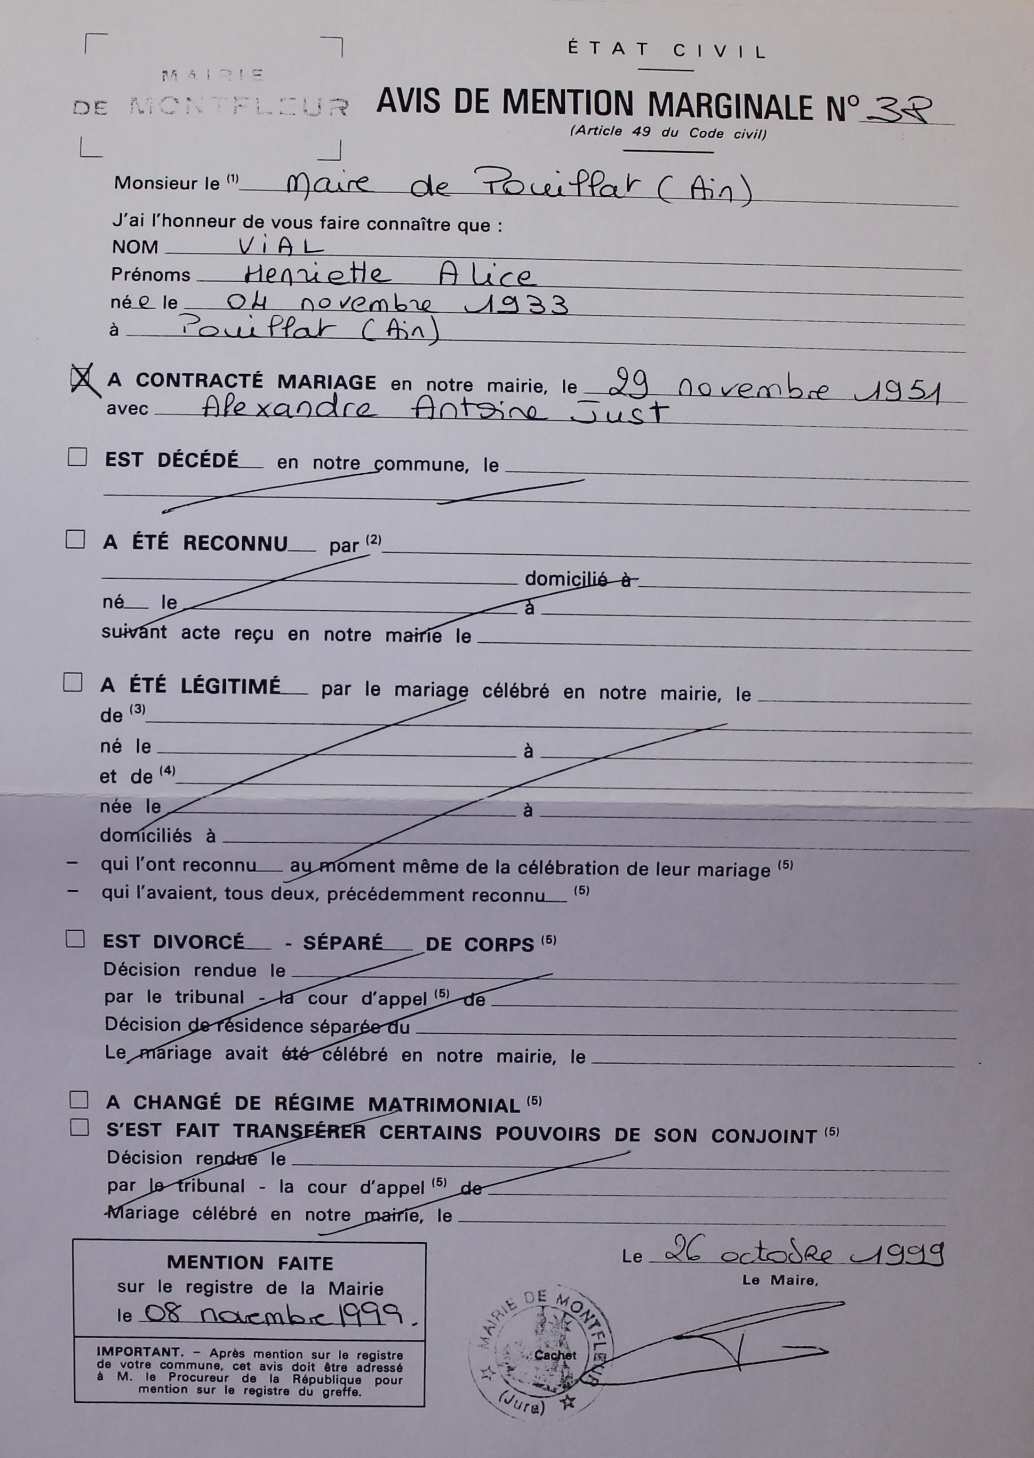 ÉTAT CIVIL
MAIRIE
DE MONTFLEUR
AVIS DE MENTION MARGINALE N° 38
(Article 49 du Code civil)
Monsieur le (1) Maire de Pouillat (Ain)
J'ai l'honneur de vous faire connaître que :
NOM VIAL
Prénoms Henriette Alice
née le 04 novembre 1933
à Pouillat (Ain)
A CONTRACTÉ MARIAGE en notre mairie, le 29 novembre 1951
avec Alexandre Antoine Just
EST DÉCÉDÉ___ en notre commune, le
A ÉTÉ RECONNU___ par (2)
domicilié à
né___ le à
suivant acte reçu en notre mairie le
A ÉTÉ LÉGITIMÉ___ par le mariage célébré en notre mairie, le
de (3)
né le à
et de (4)
née le à
domiciliés à
– qui l'ont reconnu___ au moment même de la célébration de leur mariage (5)
– qui l'avaient, tous deux, précédemment reconnu___ (5)
EST DIVORCÉ___ - SÉPARÉ___ DE CORPS (5)
Décision rendue le
par le tribunal - la cour d'appel (5) de
Décision de résidence séparée du
Le mariage avait été célébré en notre mairie, le
A CHANGÉ DE RÉGIME MATRIMONIAL (5)
S'EST FAIT TRANSFÉRER CERTAINS POUVOIRS DE SON CONJOINT (5)
Décision rendue le
par le tribunal - la cour d'appel (5) de
Mariage célébré en notre mairie, le
Le 26 octobre 1999
Le Maire,
MENTION FAITE
sur le registre de la Mairie
le 08 novembre 1999.
IMPORTANT. – Après mention sur le registre
de votre commune, cet avis doit être adressé
à M. le Procureur de la République pour
mention sur le registre du greffe.
MAIRIE DE MONTFLEUR
Cachet
(Jura)